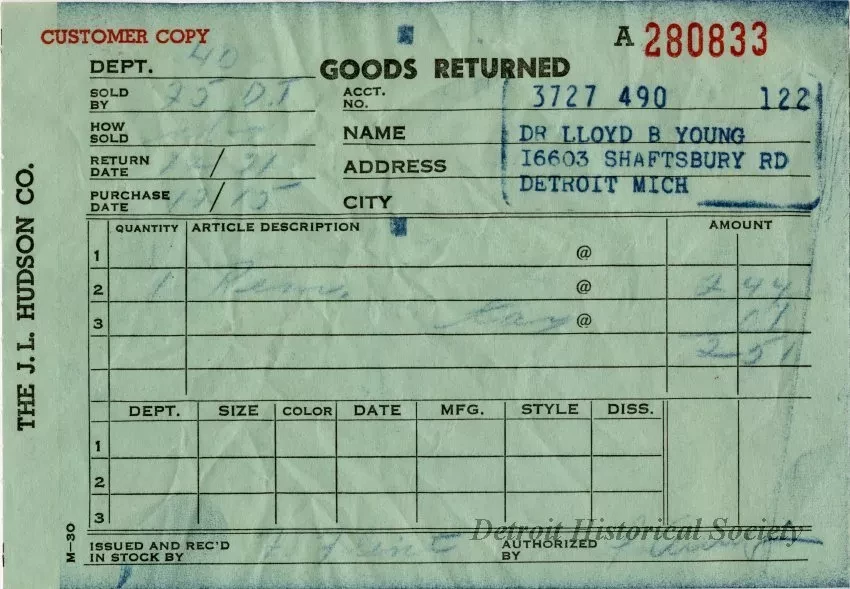 CUSTOMER COPY
A 280833
DEPT. 40
GOODS RETURNED
SOLD BY 25 D.T
ACCT. NO. 3727 490 122
HOW SOLD
NAME DR LLOYD B YOUNG
RETURN DATE 12/21
ADDRESS 16603 SHAFTSBURY RD
PURCHASE DATE 12/15
CITY DETROIT MICH
THE J. L. HUDSON CO.
QUANTITY ARTICLE DESCRIPTION AMOUNT
1 @
2 1 Rem. @ 2 44
3 @
2 51
DEPT. SIZE COLOR DATE MFG. STYLE DISS.
1
2
3
M-30
Detroit Historical Society
ISSUED AND REC'D IN STOCK BY
AUTHORIZED BY